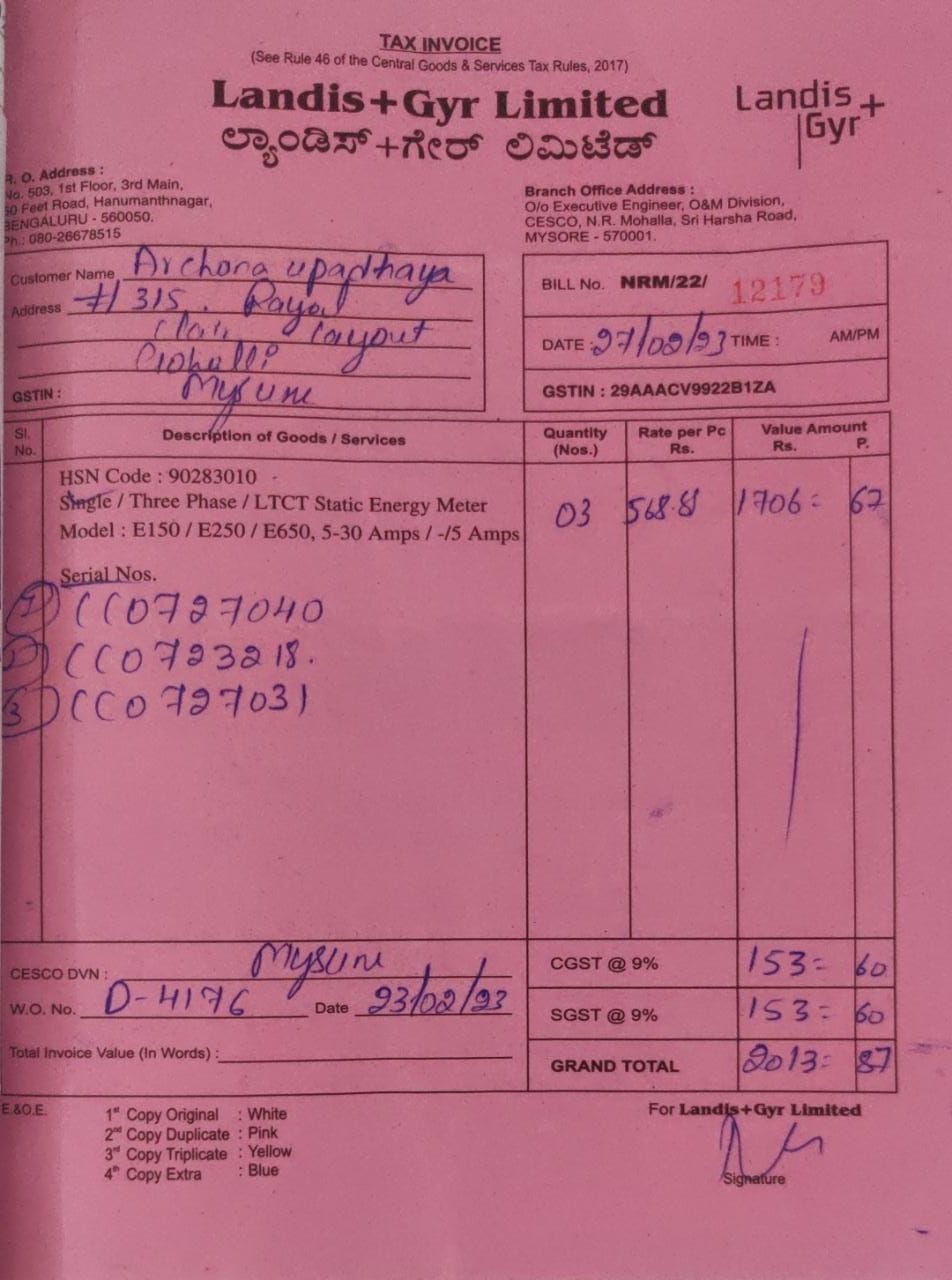 TAX INVOICE
(See Rule 46 of the Central Goods & Services Tax Rules, 2017)
Landis+Gyr Limited
ಲ್ಯಾಂಡಿಸ್+ಗೇರ್ ಲಿಮಿಟೆಡ್
Landis
Gyr+
R. O. Address :
No. 503, 1st Floor, 3rd Main,
60 Feet Road, Hanumanthnagar,
BENGALURU - 560050.
Ph.: 080-26678515
Branch Office Address :
O/o Executive Engineer, O&M Division,
CESCO, N.R. Mohalla, Sri Harsha Road,
MYSORE - 570001.
Customer Name Archana upadhaya
Address #1315. Rayal
layout
GSTIN : Mysuru
BILL No. NRM/22/ 12179
DATE : 27/02/23 TIME : AM/PM
GSTIN : 29AAACV9922B1ZA
Sl. No. Description of Goods / Services Quantity (Nos.) Rate per Pc Rs. Value Amount Rs. P.
HSN Code : 90283010
Single / Three Phase / LTCT Static Energy Meter 03 568.88 1706= 67
Model : E150 / E250 / E650, 5-30 Amps / -/5 Amps
Serial Nos.
1) CC0727040
2) CC0723218.
3) CC0727031
CESCO DVN : Mysuru
W.O. No. D-4176 Date 23/02/23
Total Invoice Value (In Words) :
CGST @ 9% 153= 60
SGST @ 9% 153= 60
GRAND TOTAL 2013= 87
E.&O.E.
1st Copy Original : White
2nd Copy Duplicate : Pink
3rd Copy Triplicate : Yellow
4th Copy Extra : Blue
For Landis+Gyr Limited
Signature